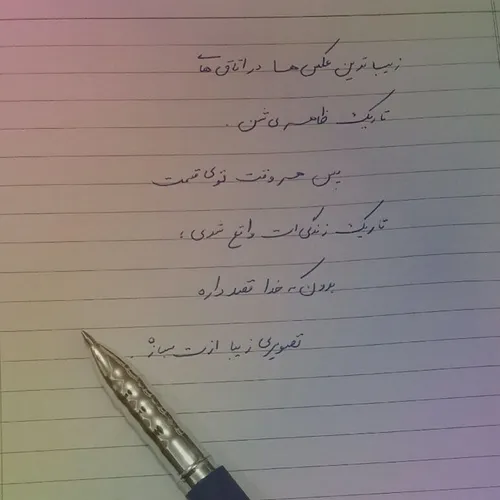 زیباترین عکس ها در اتاق های
تاریک ظاهر می شن.
پس هر وقت توی قسمت
تاریک زندگی ات واقع شدی؛
بدون که خدا قصد داره
تصویری زیبا ازت بسازه.